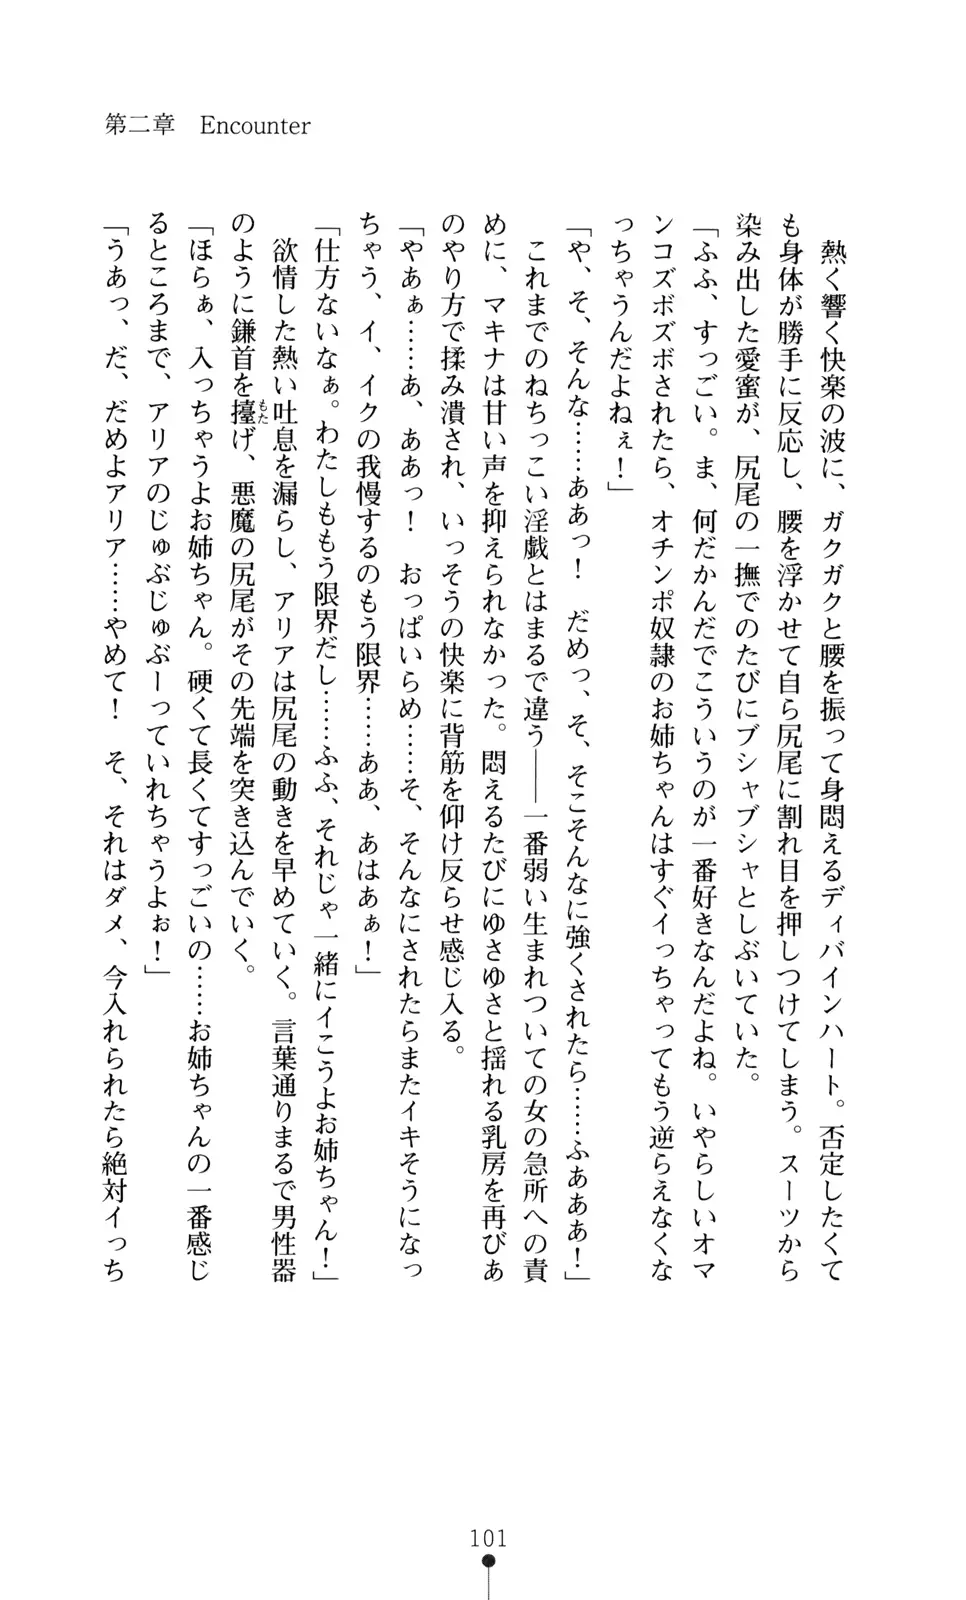 第二章　Encounter
　熱く響く快楽の波に、ガクガクと腰を振って身悶えるディバインハート。否定したくて
も身体が勝手に反応し、腰を浮かせて自ら尻尾に割れ目を押しつけてしまう。スーツから
染み出した愛蜜が、尻尾の一撫でのたびにブシャブシャとしぶいていた。
「ふふ、すっごい。ま、何だかんだでこういうのが一番好きなんだよね。いやらしいオマ
ンコズボズボされたら、オチンポ奴隷のお姉ちゃんはすぐイっちゃってもう逆らえなくな
っちゃうんだよねぇ！」
「や、そ、そんな……ああっ！　だめっ、そ、そこそんなに強くされたら……ふあああ！」
　これまでのねちっこい淫戯とはまるで違う――一番弱い生まれついての女の急所への責
めに、マキナは甘い声を抑えられなかった。悶えるたびにゆさゆさと揺れる乳房を再びあ
のやり方で揉み潰され、いっそうの快楽に背筋を仰け反らせ感じ入る。
「やあぁ……あ、ああっ！　おっぱいらめ……そ、そんなにされたらまたイキそうになっ
ちゃう、イ、イクの我慢するのもう限界……ああ、あはあぁ！」
「仕方ないなぁ。わたしももう限界だし……ふふ、それじゃ一緒にイこうよお姉ちゃん！」
　欲情した熱い吐息を漏らし、アリアは尻尾の動きを早めていく。言葉通りまるで男性器
のように鎌首を擡もたげ、悪魔の尻尾がその先端を突き込んでいく。
「ほらぁ、入っちゃうよお姉ちゃん。硬くて長くてすっごいの……お姉ちゃんの一番感じ
るところまで、アリアのじゅぶじゅぶーっていれちゃうよぉ！」
「うあっ、だ、だめよアリア……やめて！　そ、それはダメ、今入れられたら絶対イっち
101